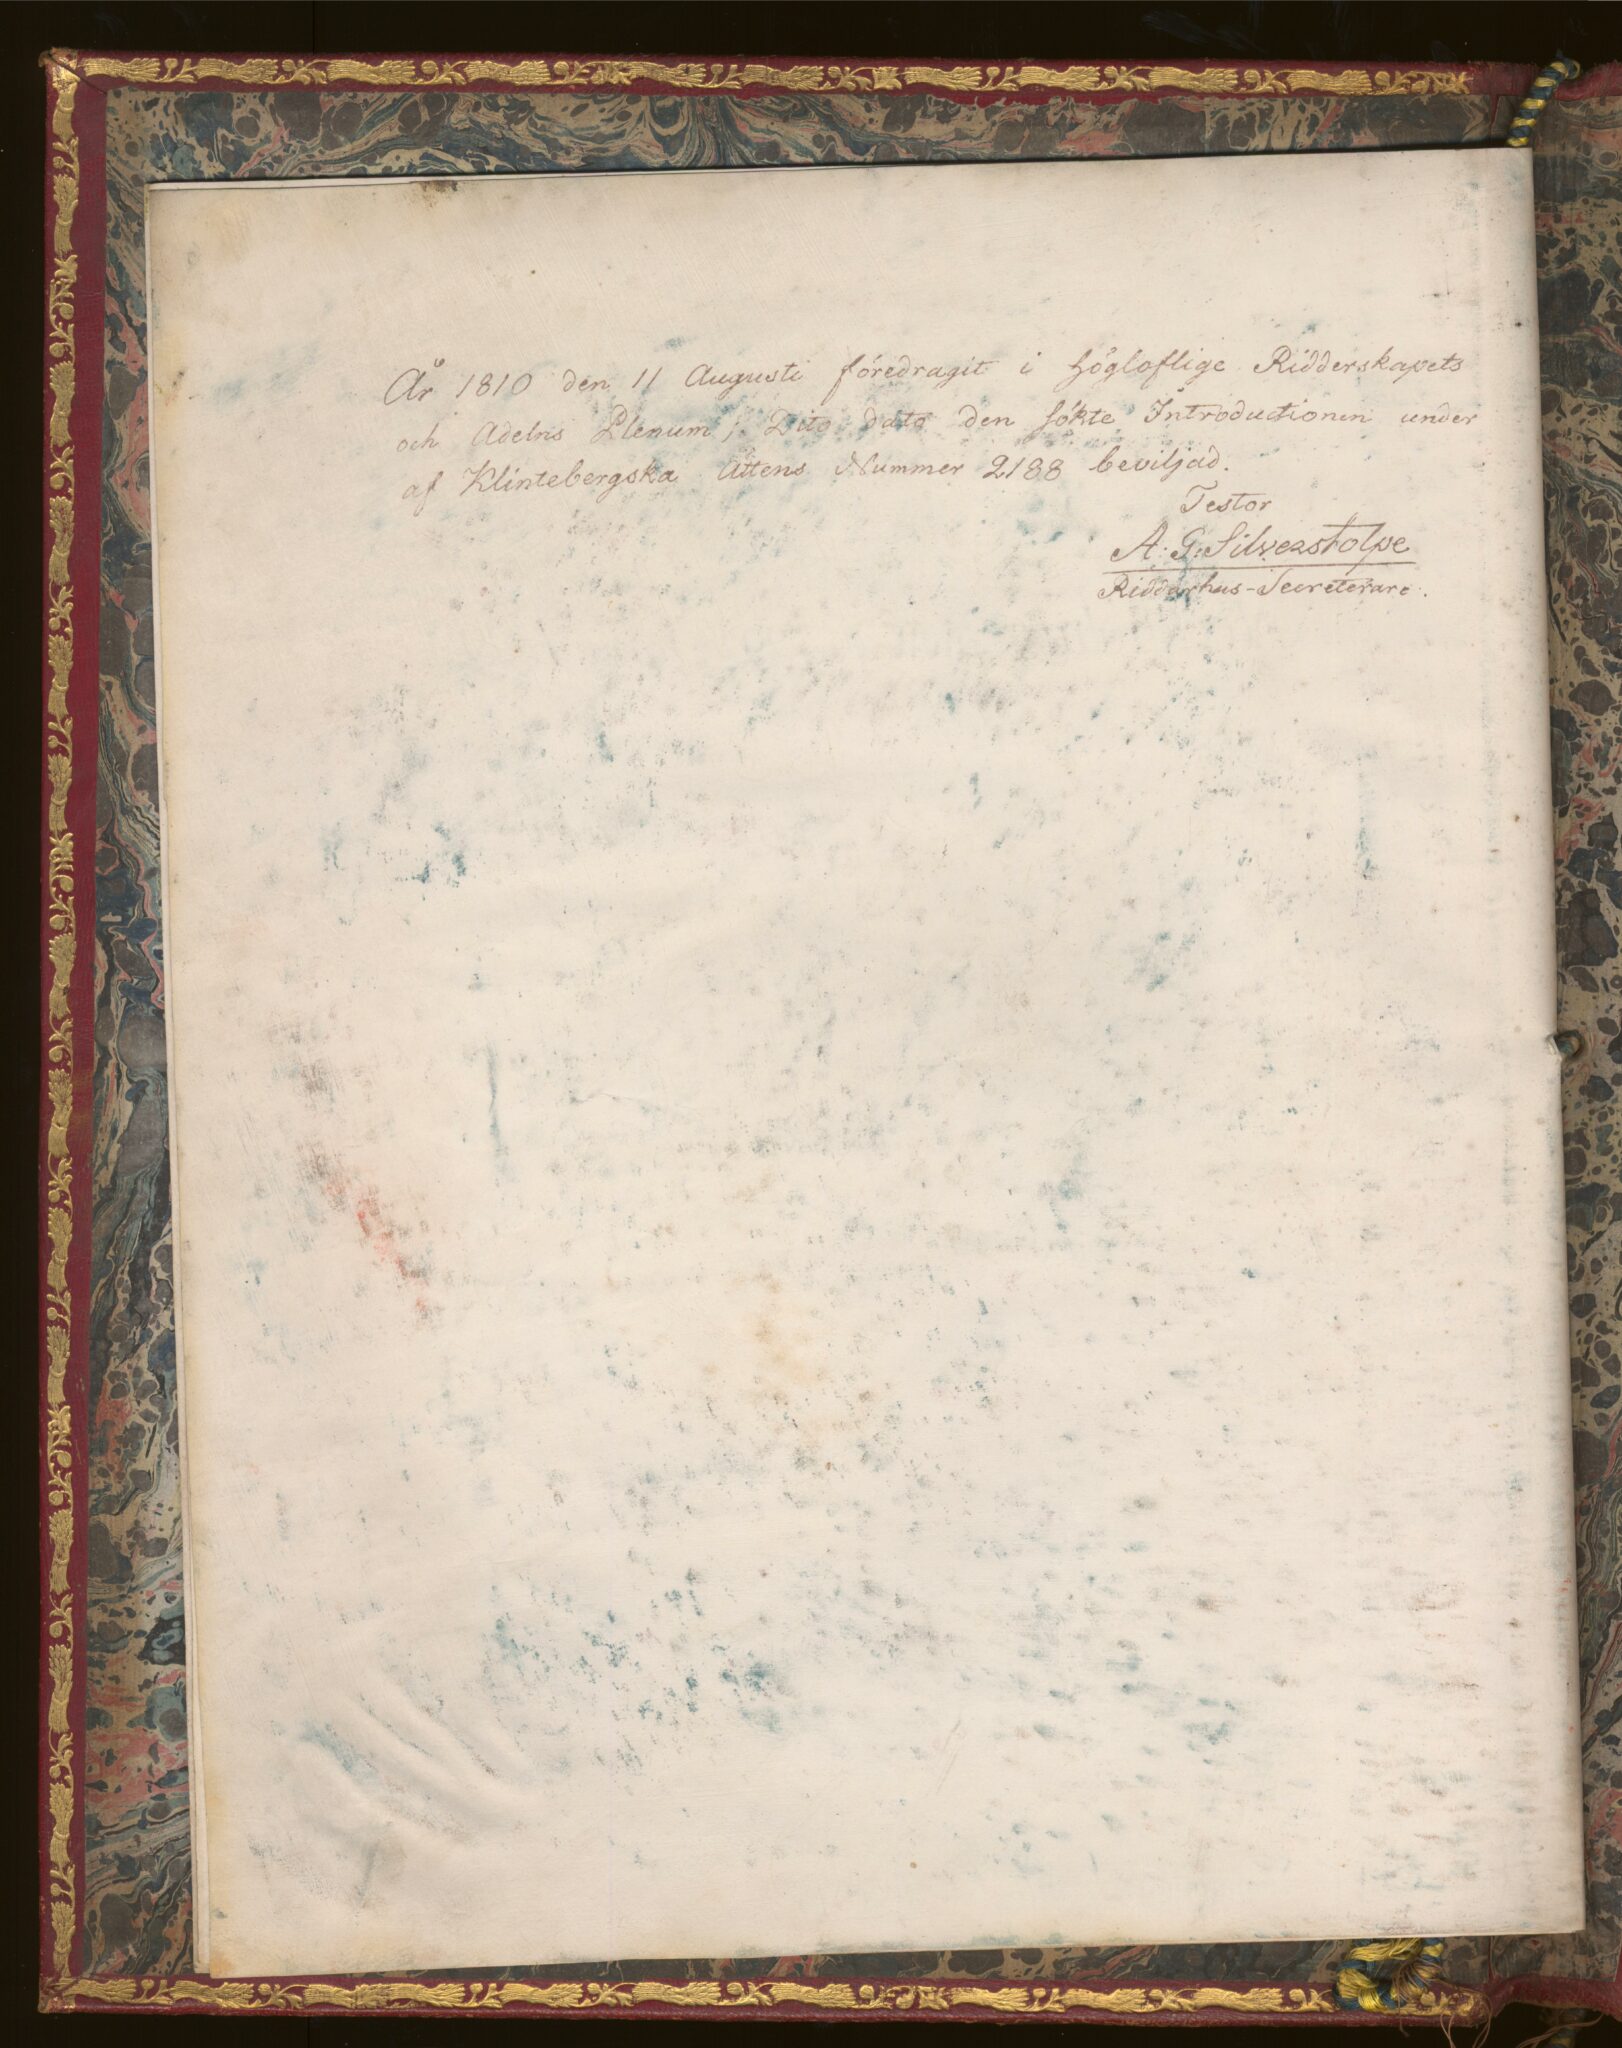 År 1810 den 11 Augusti föredragit i Högloflige Ridderskapets
och Adelns Plenum; Dito dato den sökte Introductionen under
af Klintebergska Ättens Nummer 2188 beviljad.
Testor
A: G: Silverstolpe
Riddarhus-Secreterare.